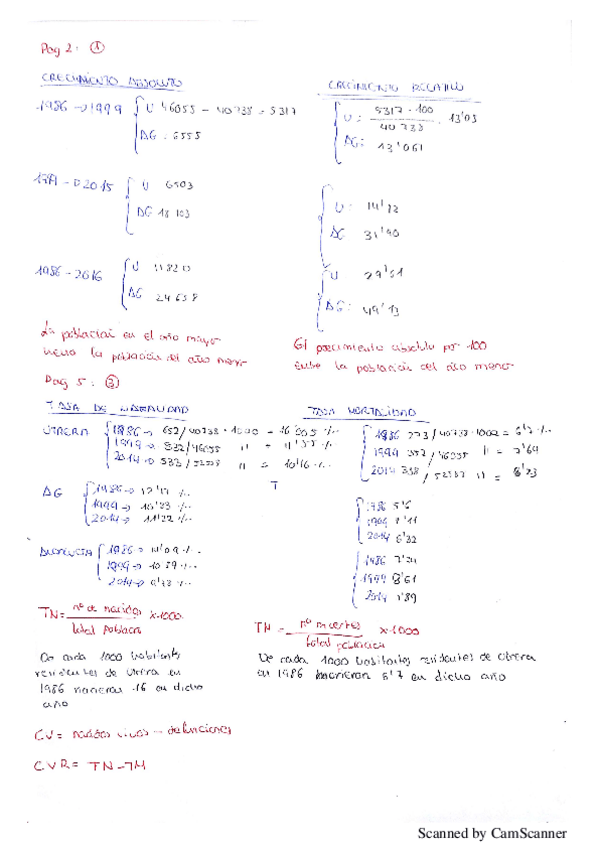 Pag 2: ①
CRECIMIENTO ABSOLUTO
CRECIMIENTO RELATIVO
1986 → 1999 U 46055 - 40738 = 5317
AG: 6555
U: 5317·100 / 40738 = 13'05
AG: 13'061
2015 U 6503
AG 18103
U: 14'12
AG 31'90
1986 - 2016 U 11820
AG 24658
U 29'51
AG: 49'13
La población en el año mayor
menos la población del año menor
El crecimiento absoluto por 100
entre la población del año menor
Pag 5: ③
TASA DE NATALIDAD
TASA MORTALIDAD
UTRERA 1986 → 652/40738·1000 = 16'005 ‰
1999 → 532/46055 " = 11'55 ‰
2014 → 533/ " = 10'16 ‰
1986 273/40738·1000 = 6'7 ‰
1999 352/46055 " = 7'64
2014 358/ " = 6'73
T
AG 1986 → ‰
1999 → 10'23 ‰
2014 → 11'22 ‰
1986 5'6
1999 7'11
2014 6'32
ANDALUCIA 1986 → 14'09 ‰
1999 → 10'59 ‰
2014 → 9'78 ‰
1986
1999 8'61
2014 7'89
TN = nº de nacidos / total población x 1000
TN = nº muertes / total población x 1000
De cada 1000 habitants
residentes de Utrera en
1986 nacieron 16 en dicho
año
De cada 1000 habitantes residentes de Utrera
en 1986 murieron 6'7 en dicho año
CV = nacidos vivos - defunciones
CVR = TN - TM
Scanned by CamScanner